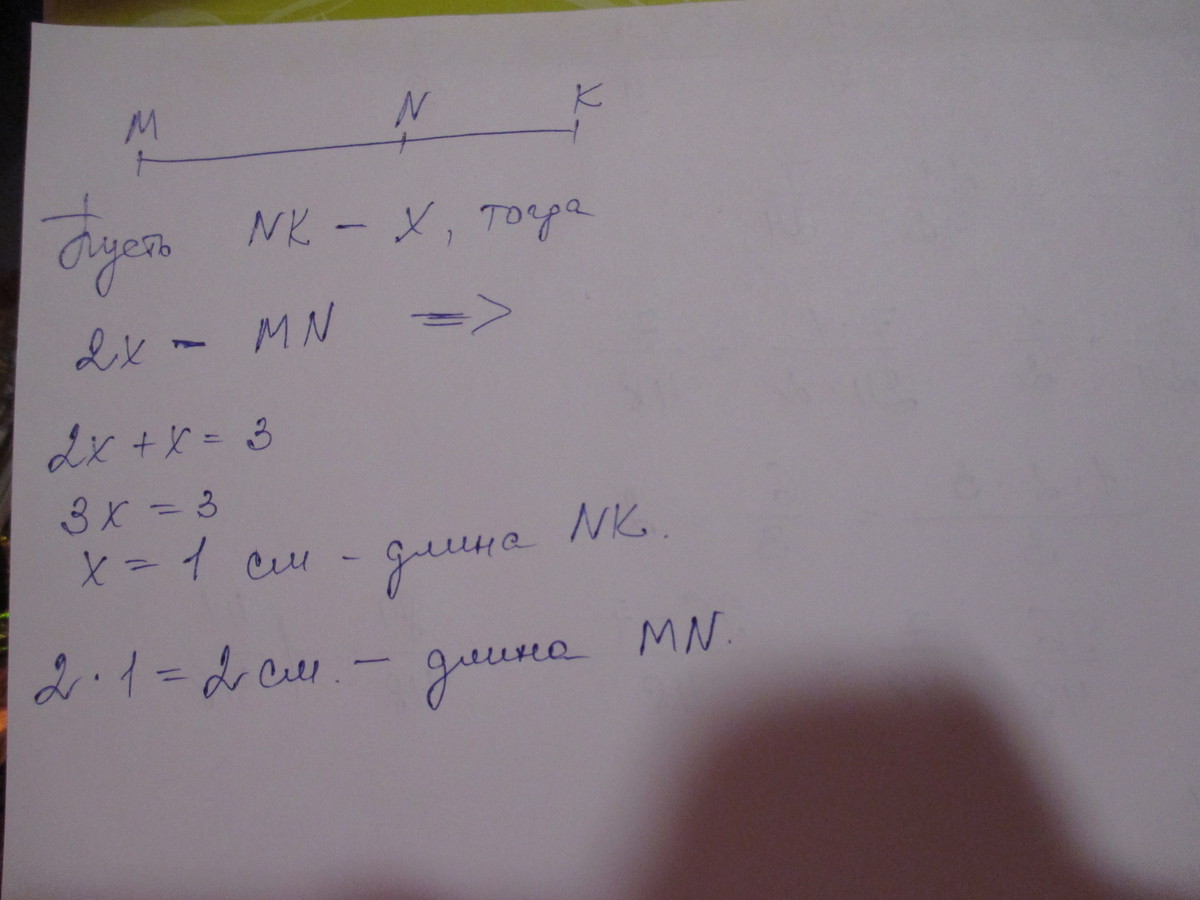 M N K
Пусть NK - X, тогда
2x - MN =>
2x + x = 3
3x = 3
x = 1 см - длина NK.
2 · 1 = 2 см. - длина MN.